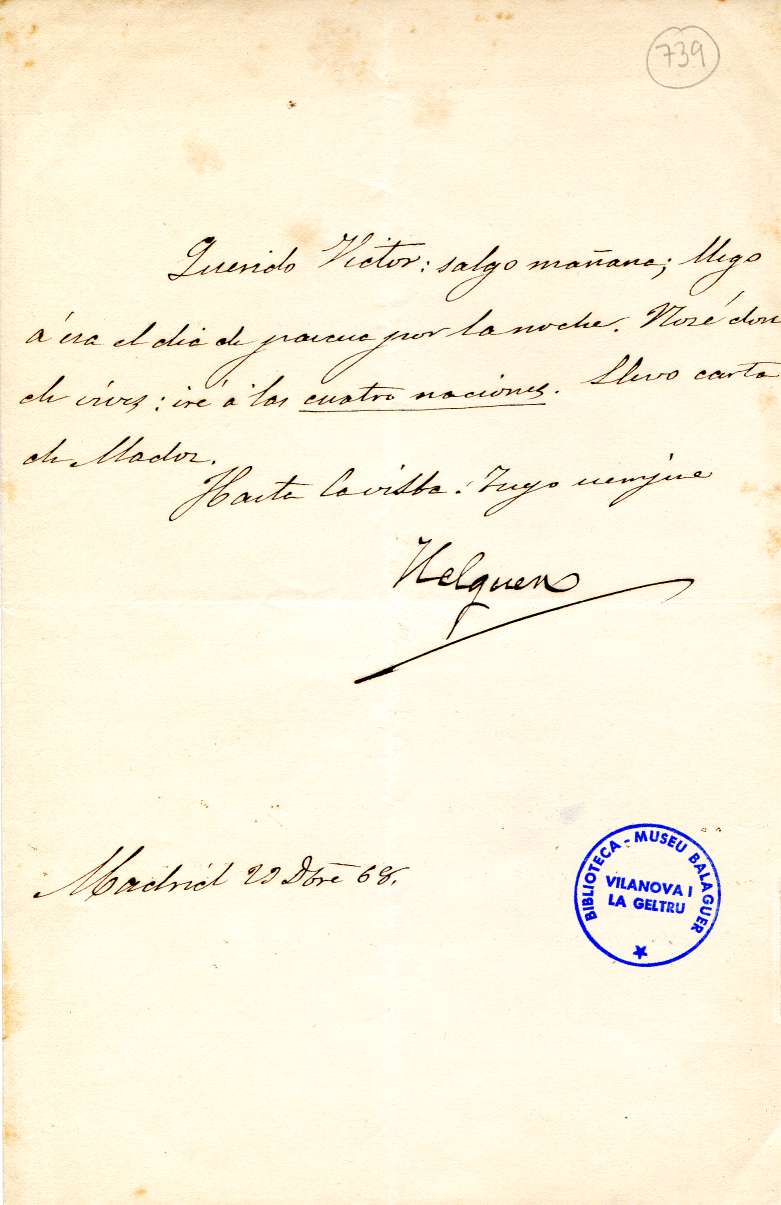 739
Querido Victor: salgo mañana; llego
á esa el dia de pascua por la noche. No sé don
de vives: iré á las cuatro naciones. Llevo carta
de Madoz.
Hasta la vista: Tuyo siempre
Madrid 22 Dbre 68.
BIBLIOTECA - MUSEU BALAGUER
VILANOVA I
LA GELTRU